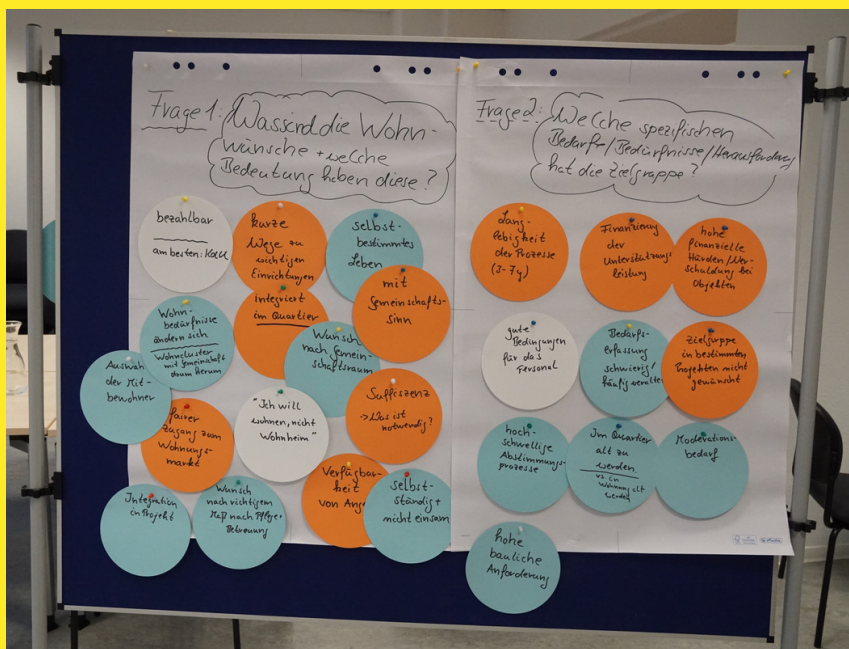 Frage 1:
Was sind die Wohn-
wünsche + welche
Bedeutung haben diese?
bezahlbar
am besten: kalt
kurze
Wege zu
wichtigen
Einrichtungen
selbst-
bestimmtes
Leben
mit
Gemeinschafts-
sinn
Wohn-
bedürfnisse
ändern sich
Wohncluster
mit Gemeinschaft
drum herum
integriert
im Quartier
Wunsch
nach Gemein-
schaftsraum
Auswahl
der Mit-
bewohner
fairer
Zugang zum
Wohnungs-
markt
"Ich will
wohnen, nicht
Wohnheim"
Suffiszenz
→ Was ist
notwendig?
Integration
in Projekt
Wunsch
nach richtigem
Maß nach Pflege +
Betreuung
Verfügbar-
keit
von
selbst-
ständig +
nicht einsam
Frage 2:
Welche spezifischen
Bedarfe/Bedürfnisse/Herausforderung
hat die Zielgruppe?
Lang-
lebigkeit
der Prozesse
(3-7y)
Finanzierung
der
Unterstützungs-
leistung
hohe
finanzielle
Hürden/Ver-
schuldung bei
Objekten
gute
Bedingungen
für das
Personal
Bedarfs-
erfassung
schwierig/
häufig veraltet
Zielgruppe
in bestimmten
Projekten nicht
gewünscht
hoch-
schwellige
Abstimmungs-
prozesse
Im Quartier
alt zu
werden
vs. in
Wohnung alt
werden
Moderations-
bedarf
hohe
bauliche
Anforderung